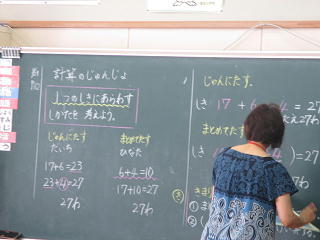 計算のじゅんじょ
1つのしきにあらわす
しかたを考えよう。
じゅんにたす
だいち
17+6=23
23+4=27
27わ
まとめてたす
ひなた
6+4=10
17+10=27
27わ
じゅんにたす。
しき 17 + 6 4 = 27
たえ27わ
まとめてたす
)=27
27わ
①
②